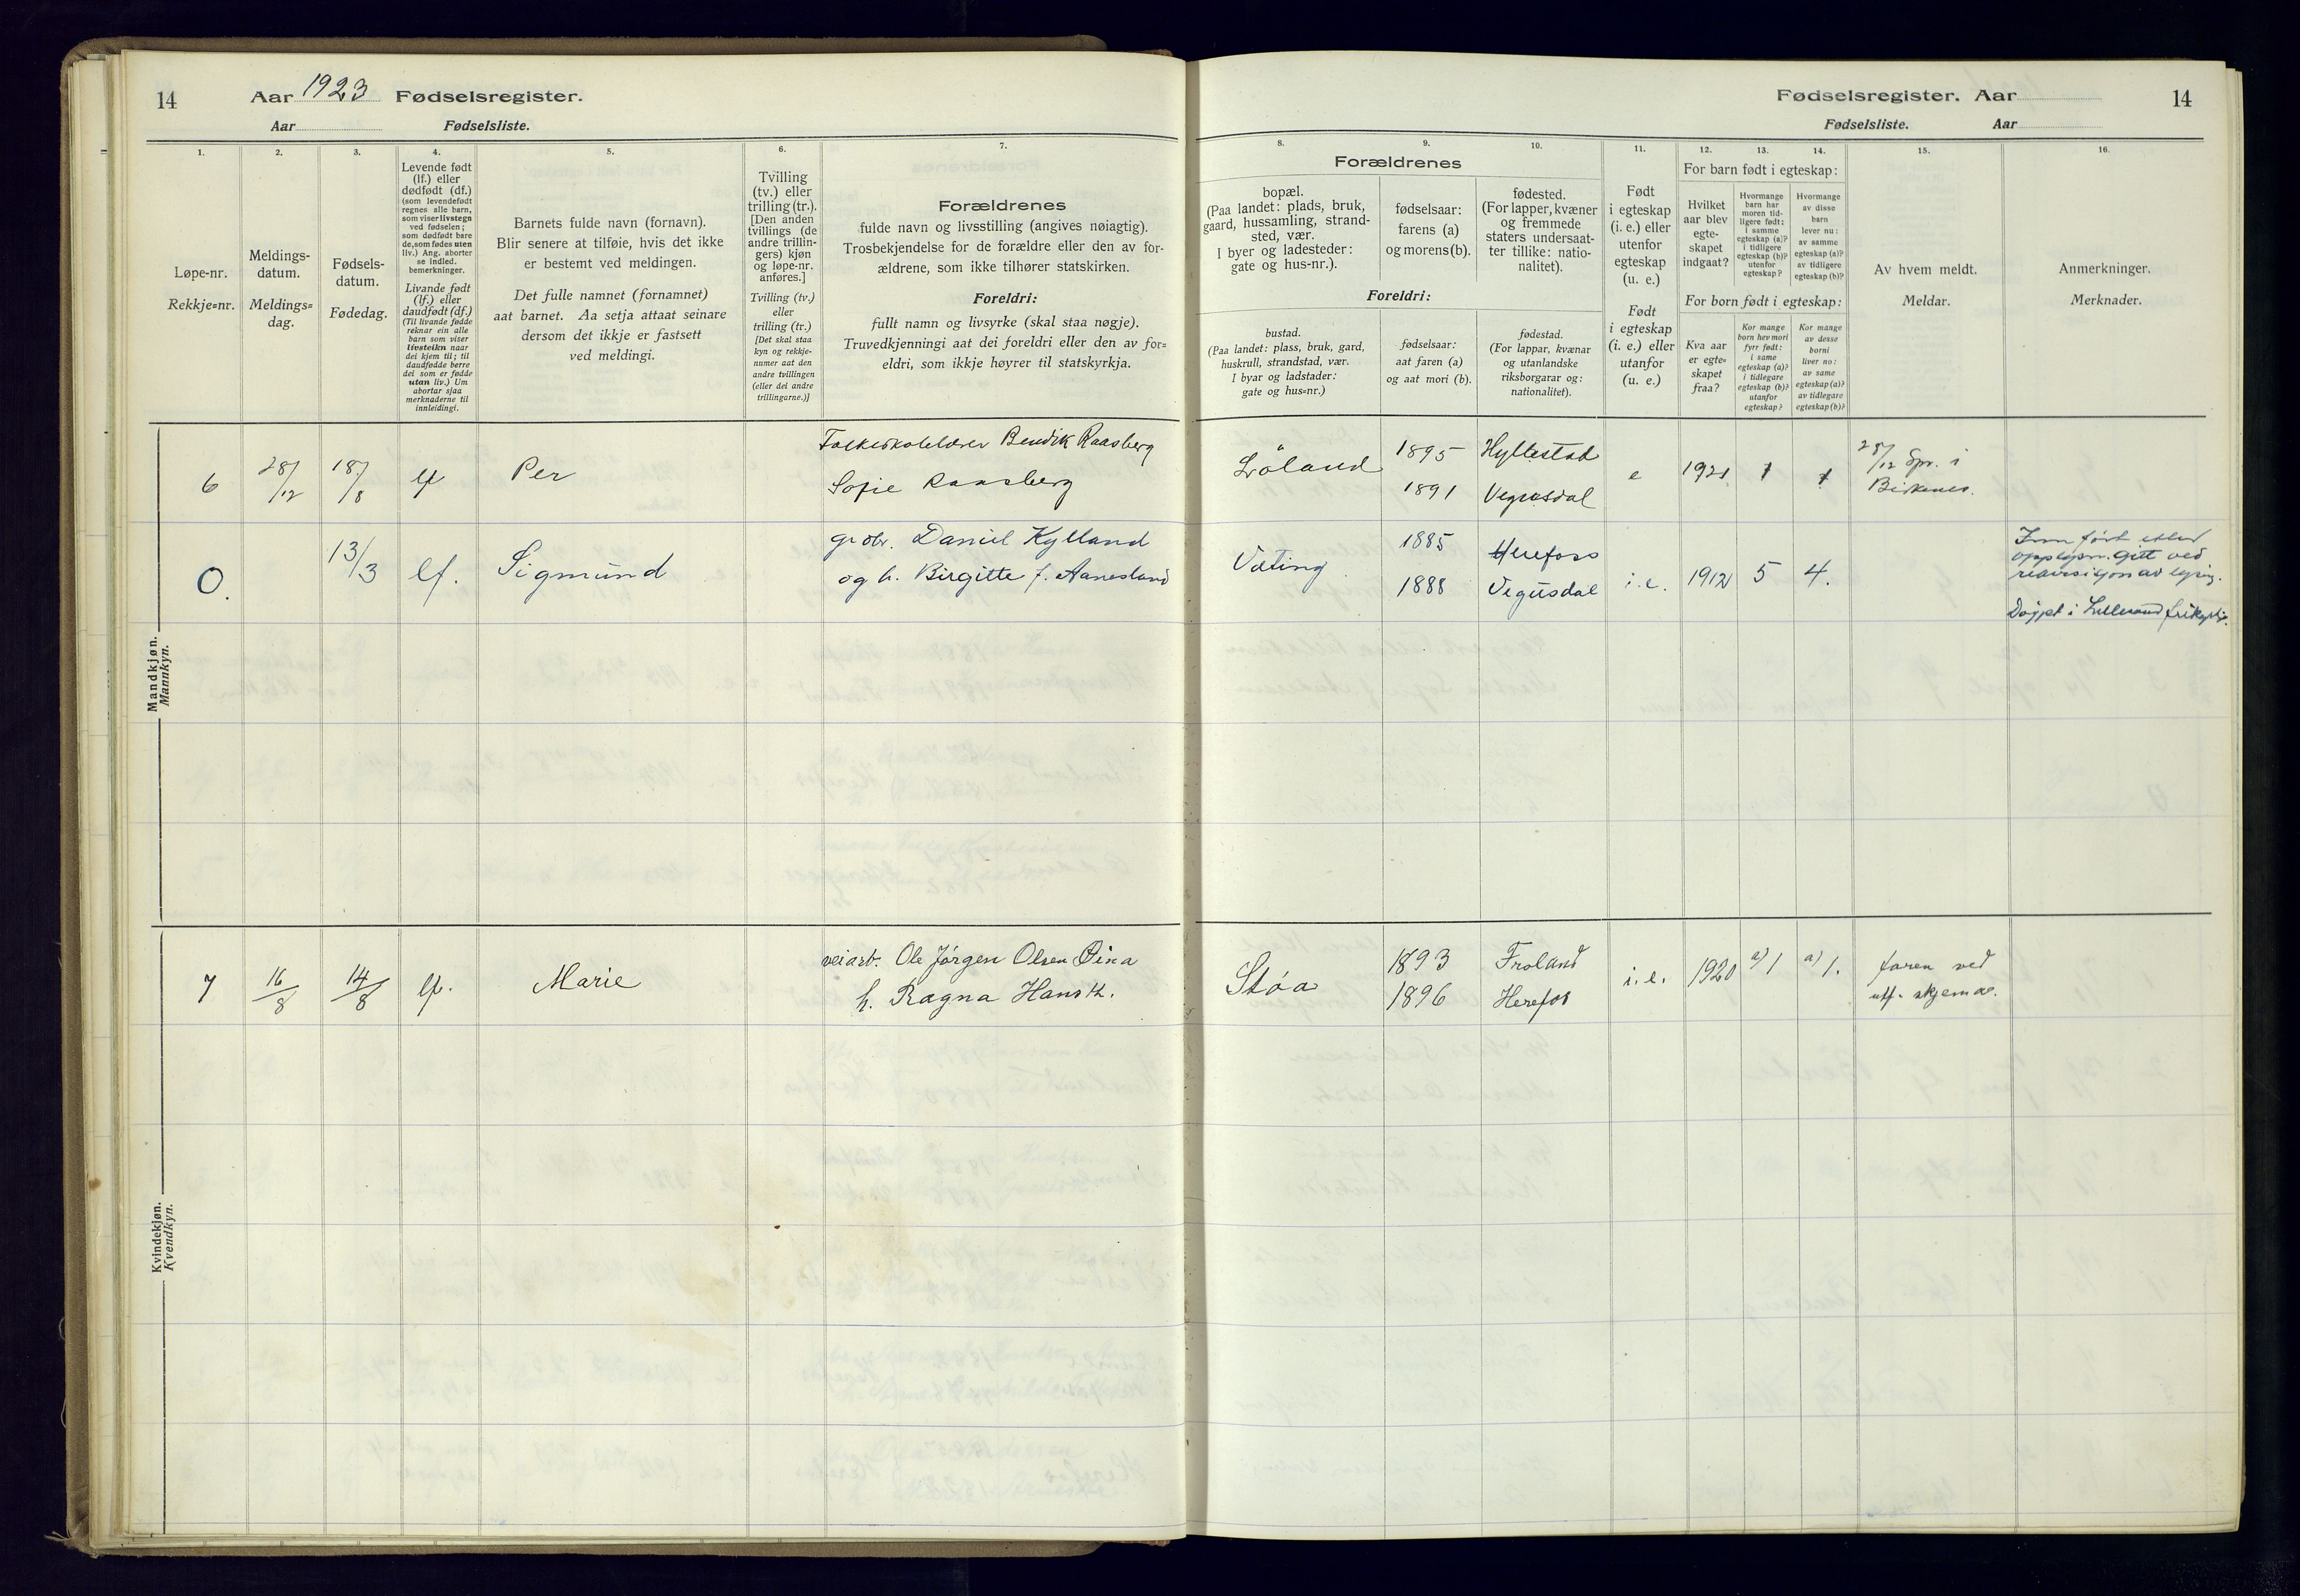 14
Aar 1923 Fødselsregister.
Aar Fødselsliste.
1.
Løpe-nr.
Rekkje=nr.
2.
Meldings-
datum.
Meldings=
dag.
3.
Fødsels-
datum.
Fødedag.
4.
Levende født
(lf.) eller
dødfødt (df.)
(som levendefødt
regnes alle barn,
som viser livstegn
ved fødselen;
som dødfødt bare
de, som fødes uten
liv.) Ang. aborter
se indled.
bemerkninger.
Livande født
(lf.) eller
daudfødt (df.)
(Til livande fødde
reknar ein alle
barn som viser
livsteikn naar
dei kjem til; til
daudfødde berre
dei som er fødde
utan liv.) Um
abortar sjaa
merknaderne til
innleidingi.
5.
Barnets fulde navn (fornavn).
Blir senere at tilføie, hvis det ikke
er bestemt ved meldingen.
Det fulle namnet (fornamnet)
aat barnet. Aa setja attaat seinare
dersom det ikkje er fastsett
ved meldingi.
6.
Tvilling
(tv.) eller
trilling (tr.).
[Den anden
tvillings (de
andre trillin-
gers) kjøn
og løpe-nr.
anføres.]
Tvilling (tv.)
eller
trilling (tr.)
[Det skal staa
kyn og rekkje-
numer aat den
andre tvillingen
(eller dei andre
trillingarne.)]
7.
Forældrenes
fulde navn og livsstilling (angives nøiagtig).
Trosbekjendelse for de forældre eller den av for-
ældrene, som ikke tilhører statskirken.
Foreldri:
fullt namn og livsyrke (skal staa nøgje).
Truvedkjenningi aat dei foreldri eller den av for=
eldri, som ikkje høyrer til statskyrkja.
Mandkjøn.
Mannkyn.
6 28/12 18/8 lf Per
Folkeskolelærer Bendik Raasberg
Sofie Raasberg
0. 13/3 lf. Sigmund
gr.br. Daniel Kylland
og h. Birgitte f. Aanesland
Kvindekjøn.
Kvendkyn.
7 16/8 14/8 lf. Marie
veiarb. Ole Jørgen Olsen Øina
h. Ragna Hansdt.
Fødselsregister. Aar
14
Fødselsliste. Aar
8.
Forældrenes
bopæl.
(Paa landet: plads, bruk,
gaard, hussamling, strand-
sted, vær.
I byer og ladesteder:
gate og hus-nr.).
Foreldri:
bustad.
(Paa landet: plass, bruk, gard,
huskrull, strandstad, vær.
I byar og ladstader:
gate og hus=nr.)
9.
fødselsaar:
farens (a)
og morens (b).
fødselsaar:
aat faren (a)
og aat mori (b).
10.
fødested.
(For lapper, kvæner
og fremmede
staters undersaat-
ter tillike: natio-
nalitet).
fødestad.
(For lappar, kvænar
og utanlandske
riksborgarar og:
nationalitet).
11.
Født
i egteskap
(i. e.) eller
utenfor
egteskap
(u. e.)
Født
i egteskap
(i. e.) eller
utanfor
(u. e.)
12. 13. 14.
For barn født i egteskap:
Hvilket
aar blev
egte-
skapet
indgaat?
Hvormange
barn har
moren tid-
ligere født:
i samme
egteskap (a)?
i tidligere
egteskap (b)?
utenfor
egteskap?
Hvormange
av disse
barn
lever nu:
av samme
egteskap (a)?
av tidligere
egteskap (b)?
For born født i egteskap:
Kva aar
er egte=
skapet
fraa?
Kor mange
born hev mori
fyrr født:
i same
egteskap (a)?
i tidlegare
egteskap (b)?
utanfor
egteskap?
Kor mange
av desse
borni
liver no:
av same
egteskap (a)?
av tidlegare
egteskap (b)?
15.
Av hvem meldt.
Meldar.
16.
Anmerkninger.
Merknader.
Løland 1895 Hyllestad e 1921 1 1 28/12 Spr. i
1891 Vegusdal Birkenes.
Væting 1885 Herefoss
1888 Vegusdal i.e. 1912 5 4.
Innført etter
opplysn. gitt ved
revisjon av
Døypt i Lillesand frikyrkje.
Støa 1893 Froland i.e. 1920 a) 1 a) 1. faren ved
1896 Herefos utf. skjema.